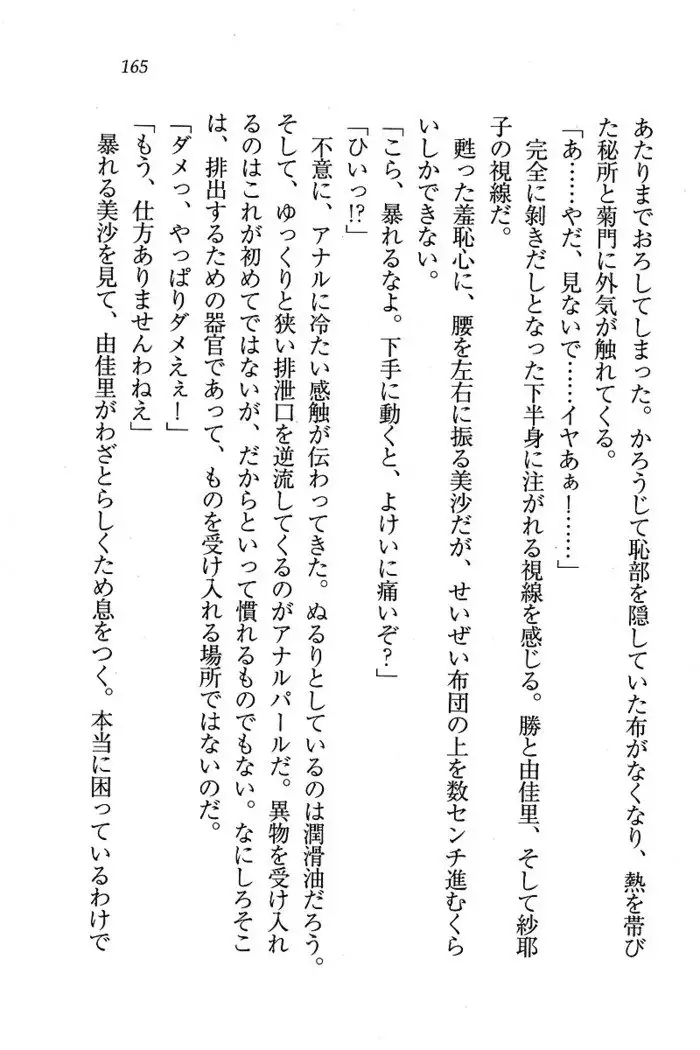 165
あたりまでおろしてしまった。かろうじて恥部を隠していた布がなくなり、熱を帯び
た秘所と菊門に外気が触れてくる。
「あ……やだ、見ないで……イヤあぁ！……」
完全に剝きだしとなった下半身に注がれる視線を感じる。勝と由佳里、そして紗耶
子の視線だ。
甦った羞恥心に、腰を左右に振る美沙だが、せいぜい布団の上を数センチ進むくら
いしかできない。
「こら、暴れるなよ。下手に動くと、よけいに痛いぞ？」
「ひいっ!?」
不意に、アナルに冷たい感触が伝わってきた。ぬるりとしているのは潤滑油だろう。
そして、ゆっくりと狭い排泄口を逆流してくるのがアナルパールだ。異物を受け入れ
るのはこれが初めてではないが、だからといって慣れるものでもない。なにしろそこ
は、排出するための器官であって、ものを受け入れる場所ではないのだ。
「ダメっ、やっぱりダメえぇ！」
「もう、仕方ありませんわねえ」
暴れる美沙を見て、由佳里がわざとらしくため息をつく。本当に困っているわけで